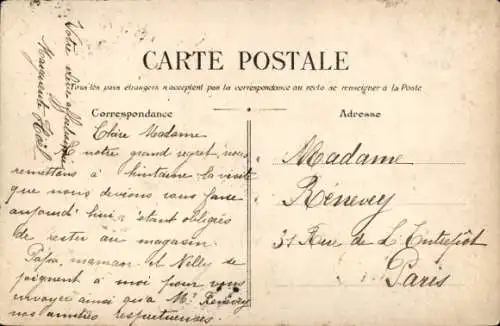 CARTE POSTALE
Tous les pays étrangers n'acceptent pas la correspondance au recto se renseigner à la Poste
Correspondance
Adresse
Chère Madame
A notre grand regret, nous
remettons à huitaine la visite
que nous devions vous faire
aujourd'hui étant obligés
de rester au magasin.
Papa, maman et Nelly se
joignent à moi pour vous
envoyer ainsi qu'à Mr Renevey
nos amitiés respectueuses.
Votre
Marguerite
Madame
Rénevey
31 Rue de L'Entrepôt
Paris